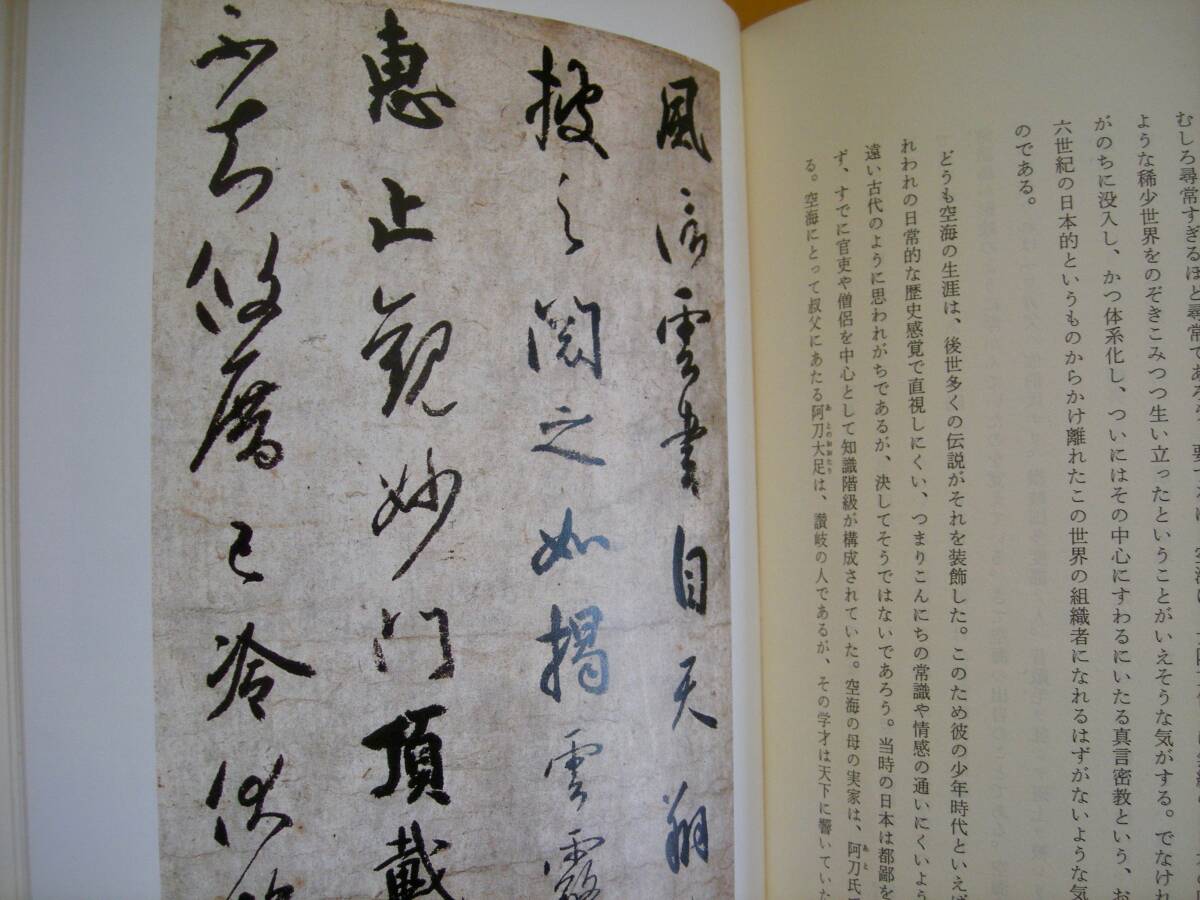 むしろ尋常すぎるほど尋常であ
ような稀少世界をのぞきこみつつ生い立ったということがいえそうな気がする。でなけれ
がのちに没入し、かつ体系化し、ついにはその中心にすわるにいたる真言密教という、お
六世紀の日本的というものからかけ離れたこの世界の組織者になれるはずがないような気
のである。
どうも空海の生涯は、後世多くの伝説がそれを装飾した。このため彼の少年時代といえば
れわれの日常的な歴史感覚で直視しにくい、つまりこんにちの常識や情感の通いにくいよう
遠い古代のように思われがちであるが、決してそうではないであろう。当時の日本は都鄙を
ず、すでに官吏や僧侶を中心として知識階級が構成されていた。空海の母の実家は、阿刀氏
る。空海にとって叔父にあたる阿刀大足は、讃岐の人であるが、その学才は天下に響いていた
風信雲書自天翔
披之閲之如揭雲霧
恵止觀妙門頂戴
不知攸厝已冷伏